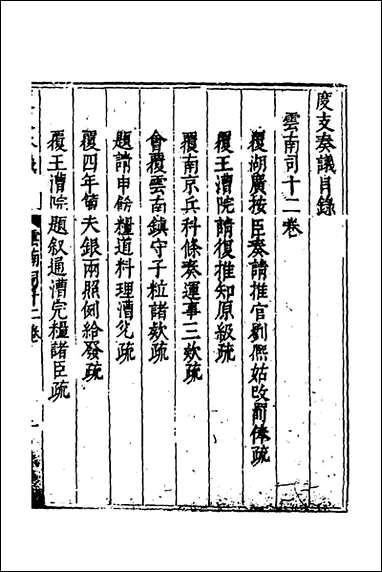 度支奏議目錄
雲南司十二卷
覆湖廣按臣奏請推官劉熈姑改罰俸疏
覆王漕院請復推知原級疏
覆南京兵科條奏運事三欵疏
會覆雲南鎮守子粒諸欵疏
題請申飭糧道料理漕兊疏
覆四年箇夫銀兩照例給發疏
覆王漕院題叙通漕完糧諸臣疏
雲南司十二卷